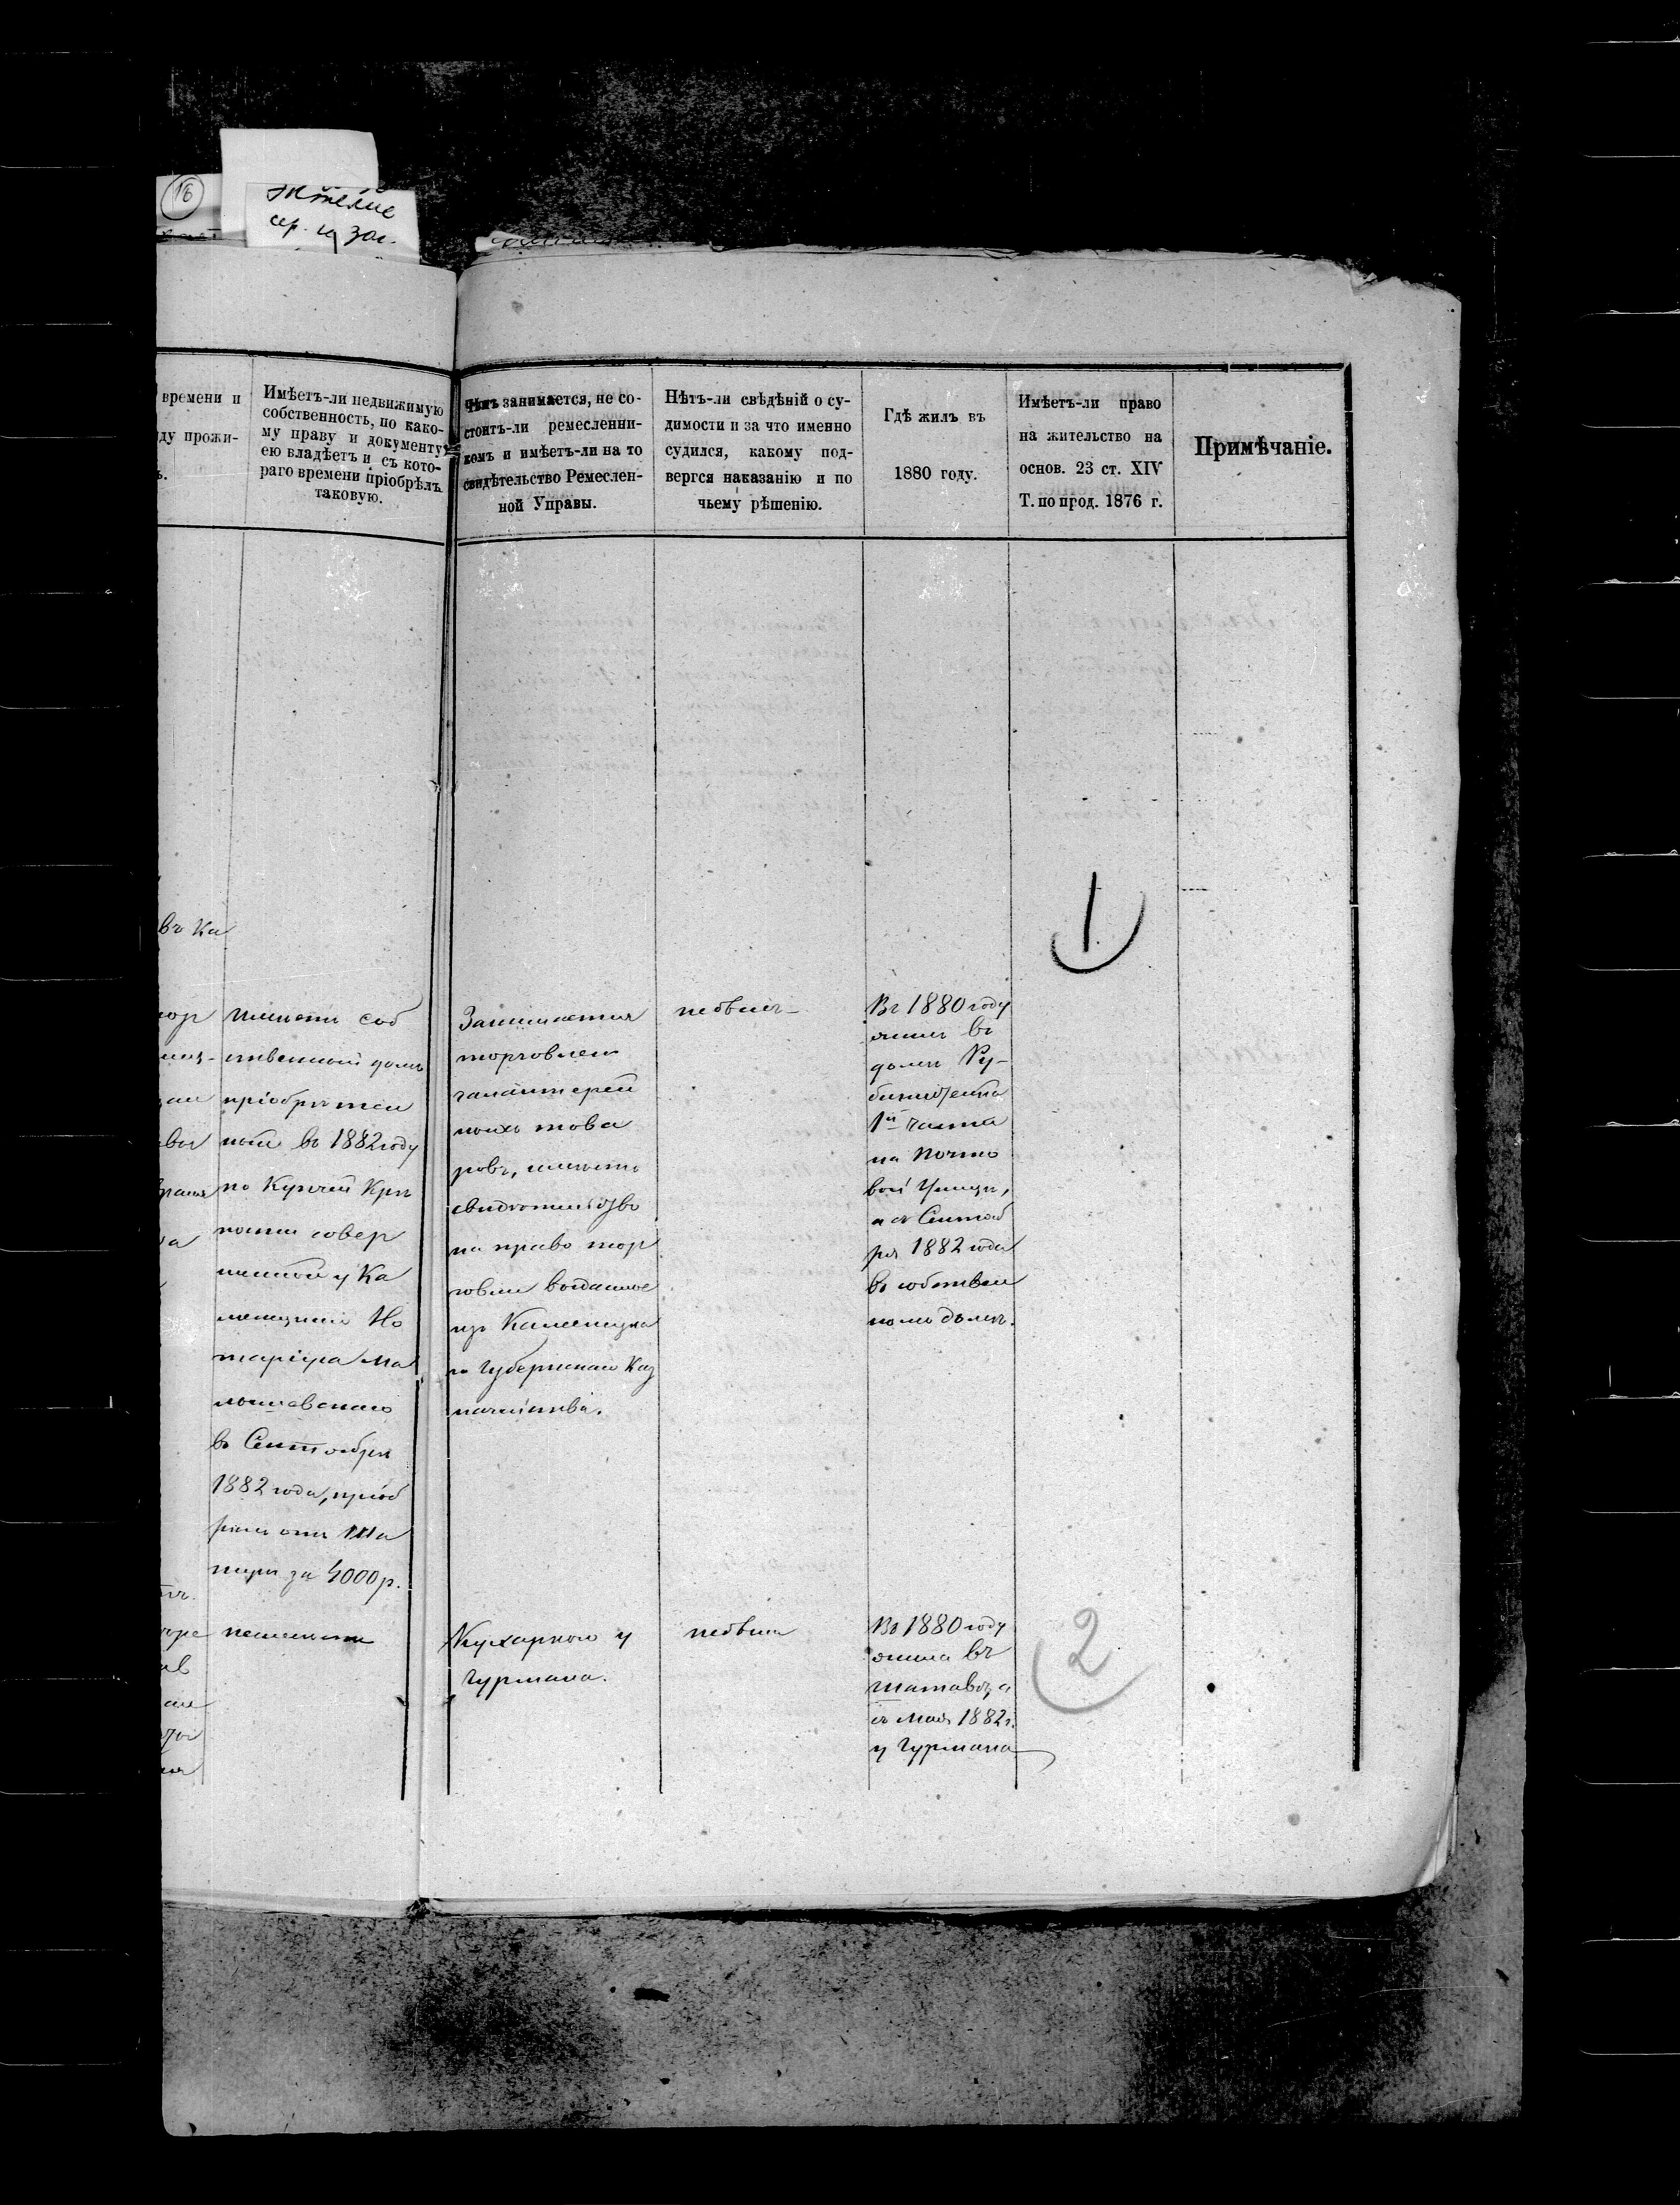 16
времени и
ду прожи-
ъ.
Имѣетъ-ли недвижимую
собственность, по како-
му праву и документу
ею владѣетъ и съ кото-
раго времени пріобрѣлъ
таковую.
Чѣмъ занимается, не со-
стоитъ-ли ремесленни-
комъ и имѣетъ-ли на то
свидѣтельство Ремеслен-
ной Управы.
Нѣтъ-ли свѣдѣній о су-
димости и за что именно
судился, какому под-
вергся наказанію и по
чьему рѣшенію.
Гдѣ жилъ въ
1880 году.
Имѣетъ-ли право
на жительство на
основ. 23 ст. XIV
Т. по прод. 1876 г.
Примѣчаніе.
въ Ка
имѣетъ соб
ственный домъ
пріобрѣтен
ный въ 1882 году
по Купчей Крѣ
пости совер
шенной у Ка
менецкаго Но
таріуса Ма
въ Сентябрѣ
1882 года, пріоб
рѣлъ отъ Ша
пиры за 4000 р.
Занимается
торговлею
галантерей
ныхъ това
ровъ, имѣетъ
свидѣтельство
на право тор
говли выданное
изъ Каменецка
го Губернскаго Каз
начейства.
небылъ
Въ 1880 году
жилъ въ
домѣ Ру-
бинштейна
1й часта
на Почто
вой Улицѣ,
а съ Сентяб
ря 1882 года
въ собствен
номъ домѣ.
1
неимѣетъ
Кухаркою у
Гурмана.
небыла
Въ 1880 году
жила въ
Шатавѣ, а
съ Мая 1882 г.
у Гурмана
2